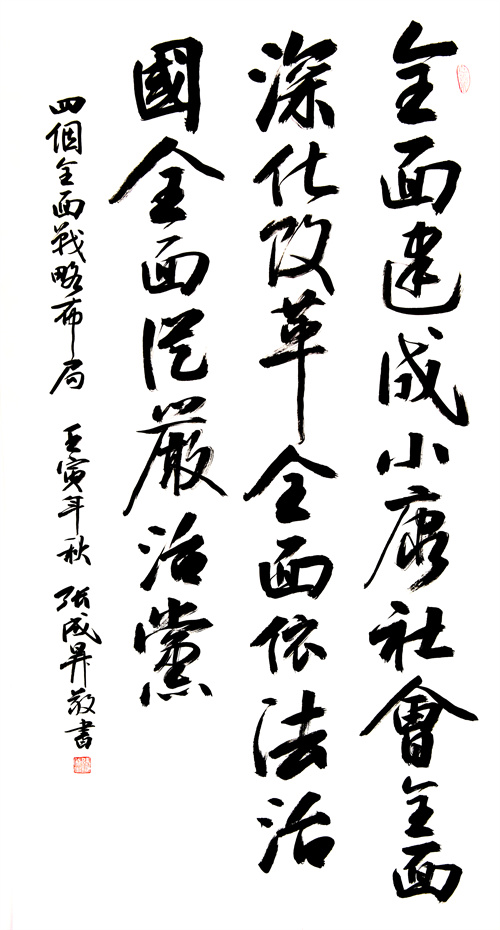 全面建成小康社會全面
深化改革全面依法治
國全面從嚴治黨
四個全面戰略布局 壬寅年秋 張成昇敬書